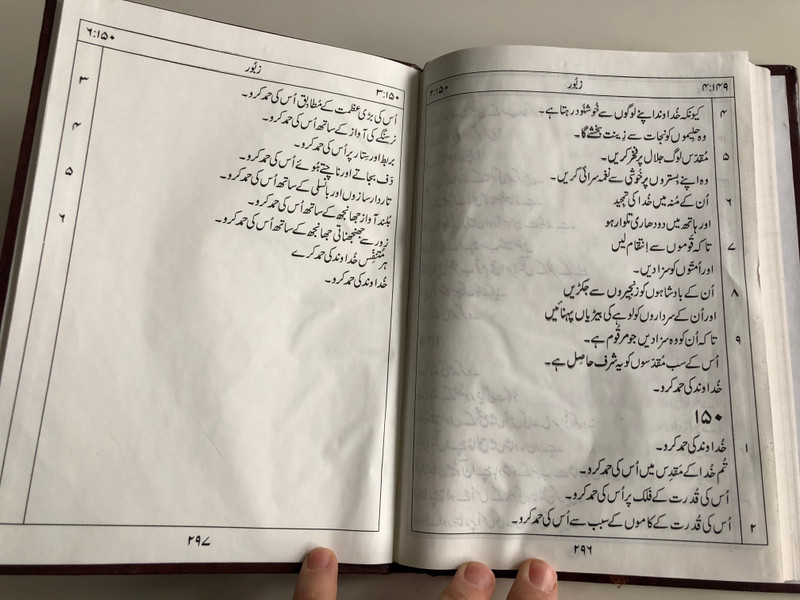 ۴:۱۴۹ زبُور ۲:۱۵۰
۴ کیونکہ خُداوند اپنے لوگوں سے خُوشنُود رہتا ہے۔
وہ حلِیموں کو نجات سے زِینت بخشے گا۔
۵ مُقدّس لوگ جلال پر فخر کریں۔
وہ اپنے بِستروں پر خُوشی سے نغمہ سرائی کریں۔
۶ اُن کے مُنہ میں خُدا کی تمجِید
اور ہاتھ میں دو دھاری تلوار ہو
۷ تاکہ قَوموں سے اِنتقام لیں
اور اُمّتوں کو سزا دیں۔
۸ اُن کے بادشاہوں کو زنجِیروں سے جکڑیں
اور اُن کے سرداروں کو لوہے کی بیڑیاں پہنائیں
۹ تاکہ اُن کو وہ سزا دیں جو مرقُوم ہے۔
اُس کے سب مُقدّسوں کو یہ شرف حاصِل ہے۔
خُداوند کی حمد کرو۔
۱۵۰
۱ خُداوند کی حمد کرو۔
تُم خُدا کے مَقدِس میں اُس کی حمد کرو۔
اُس کی قُدرت کے فلک پر اُس کی حمد کرو۔
۲ اُس کی قُدرت کے کاموں کے سبب سے اُس کی حمد کرو۔
۲۹۶
۳:۱۵۰ زبُور ۶:۱۵۰
اُس کی بڑی عظمت کے مُطابِق اُس کی حمد کرو۔
۳ نرسِنگے کی آواز کے ساتھ اُس کی حمد کرو۔
بربط اور سِتار پر اُس کی حمد کرو۔
۴ دَف بجاتے اور ناچتے ہُوئے اُس کی حمد کرو۔
تاردار سازوں اور بانسلی کے ساتھ اُس کی حمد کرو۔
۵ بُلند آواز جھانجھ کے ساتھ اُس کی حمد کرو۔
زور سے جھنجھناتی جھانجھ کے ساتھ اُس کی حمد کرو۔
۶ ہر مُتنفِّس خُداوند کی حمد کرے
خُداوند کی حمد کرو۔
۲۹۷